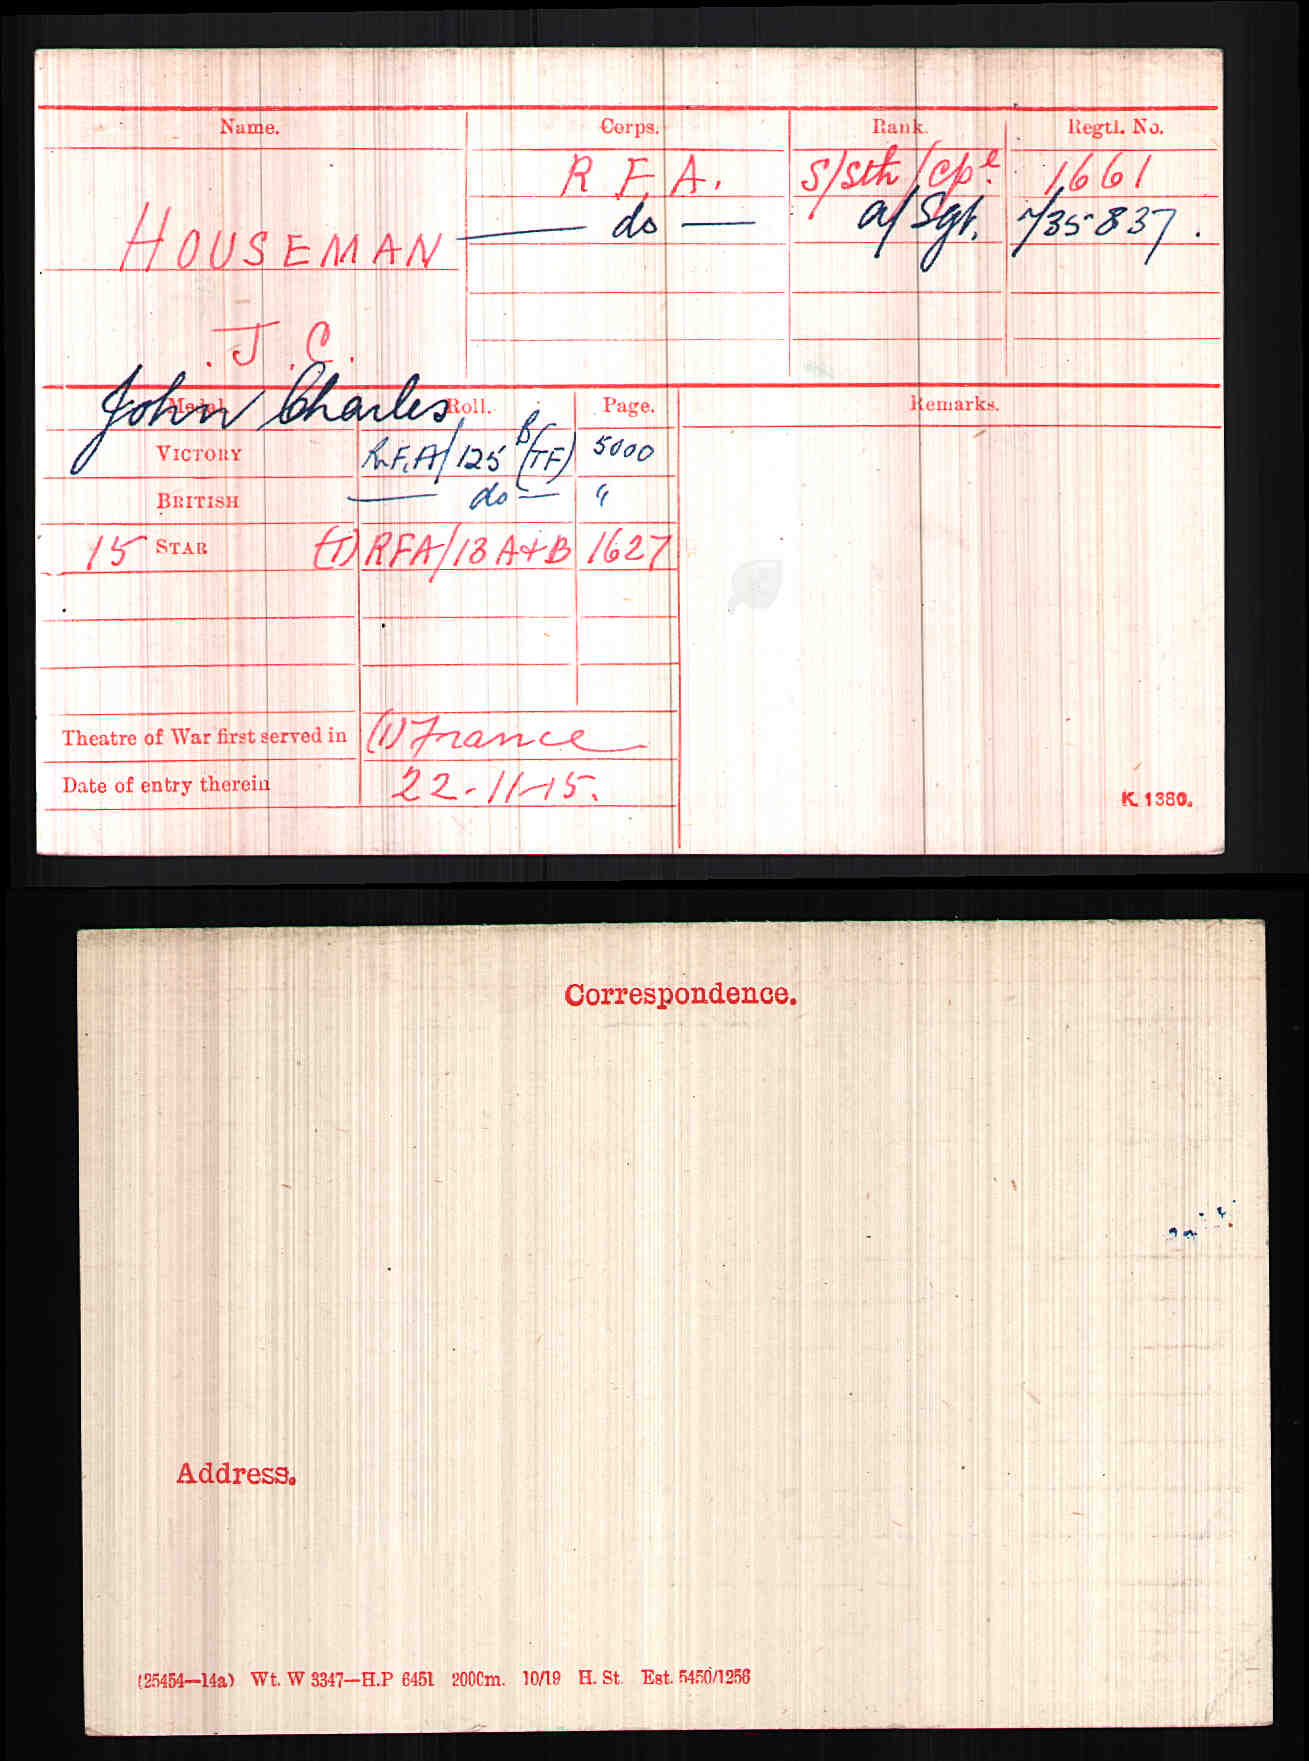 Name. Corps. Rank. Regtl. No.
R F A. S/Sth/Cpl. 1661
HOUSEMAN — do — a/Sgt. 735837.
J. C.
John Charles
Medal. Roll. Page. Remarks.
VICTORY R.F.A/125 B(TF) 5000
BRITISH — do — "
15 STAR (T) RFA/13 A+B 1627
Theatre of War first served in (1) France
Date of entry therein 22-11-15.
K. 1380.
Correspondence.
Address.
(25454—14a) Wt. W 3347—H.P 6451 2000m. 10/19 H. St. Est. 5450/1256